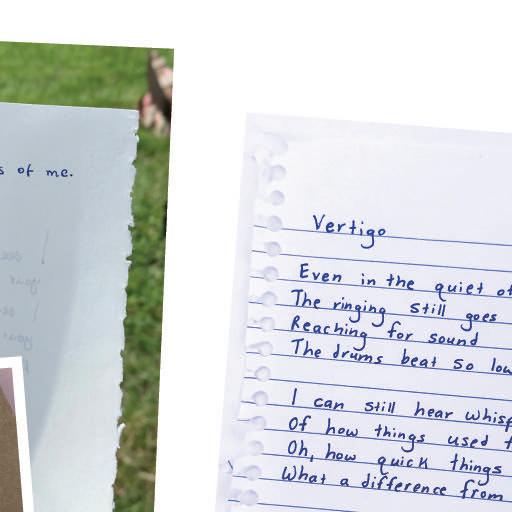 s of me.
Vertigo
Even in the quiet of
The ringing still goes
Reaching for sound
The drums beat so low
I can still hear whisp
Of how things used t
Oh, how quick things
What a difference from